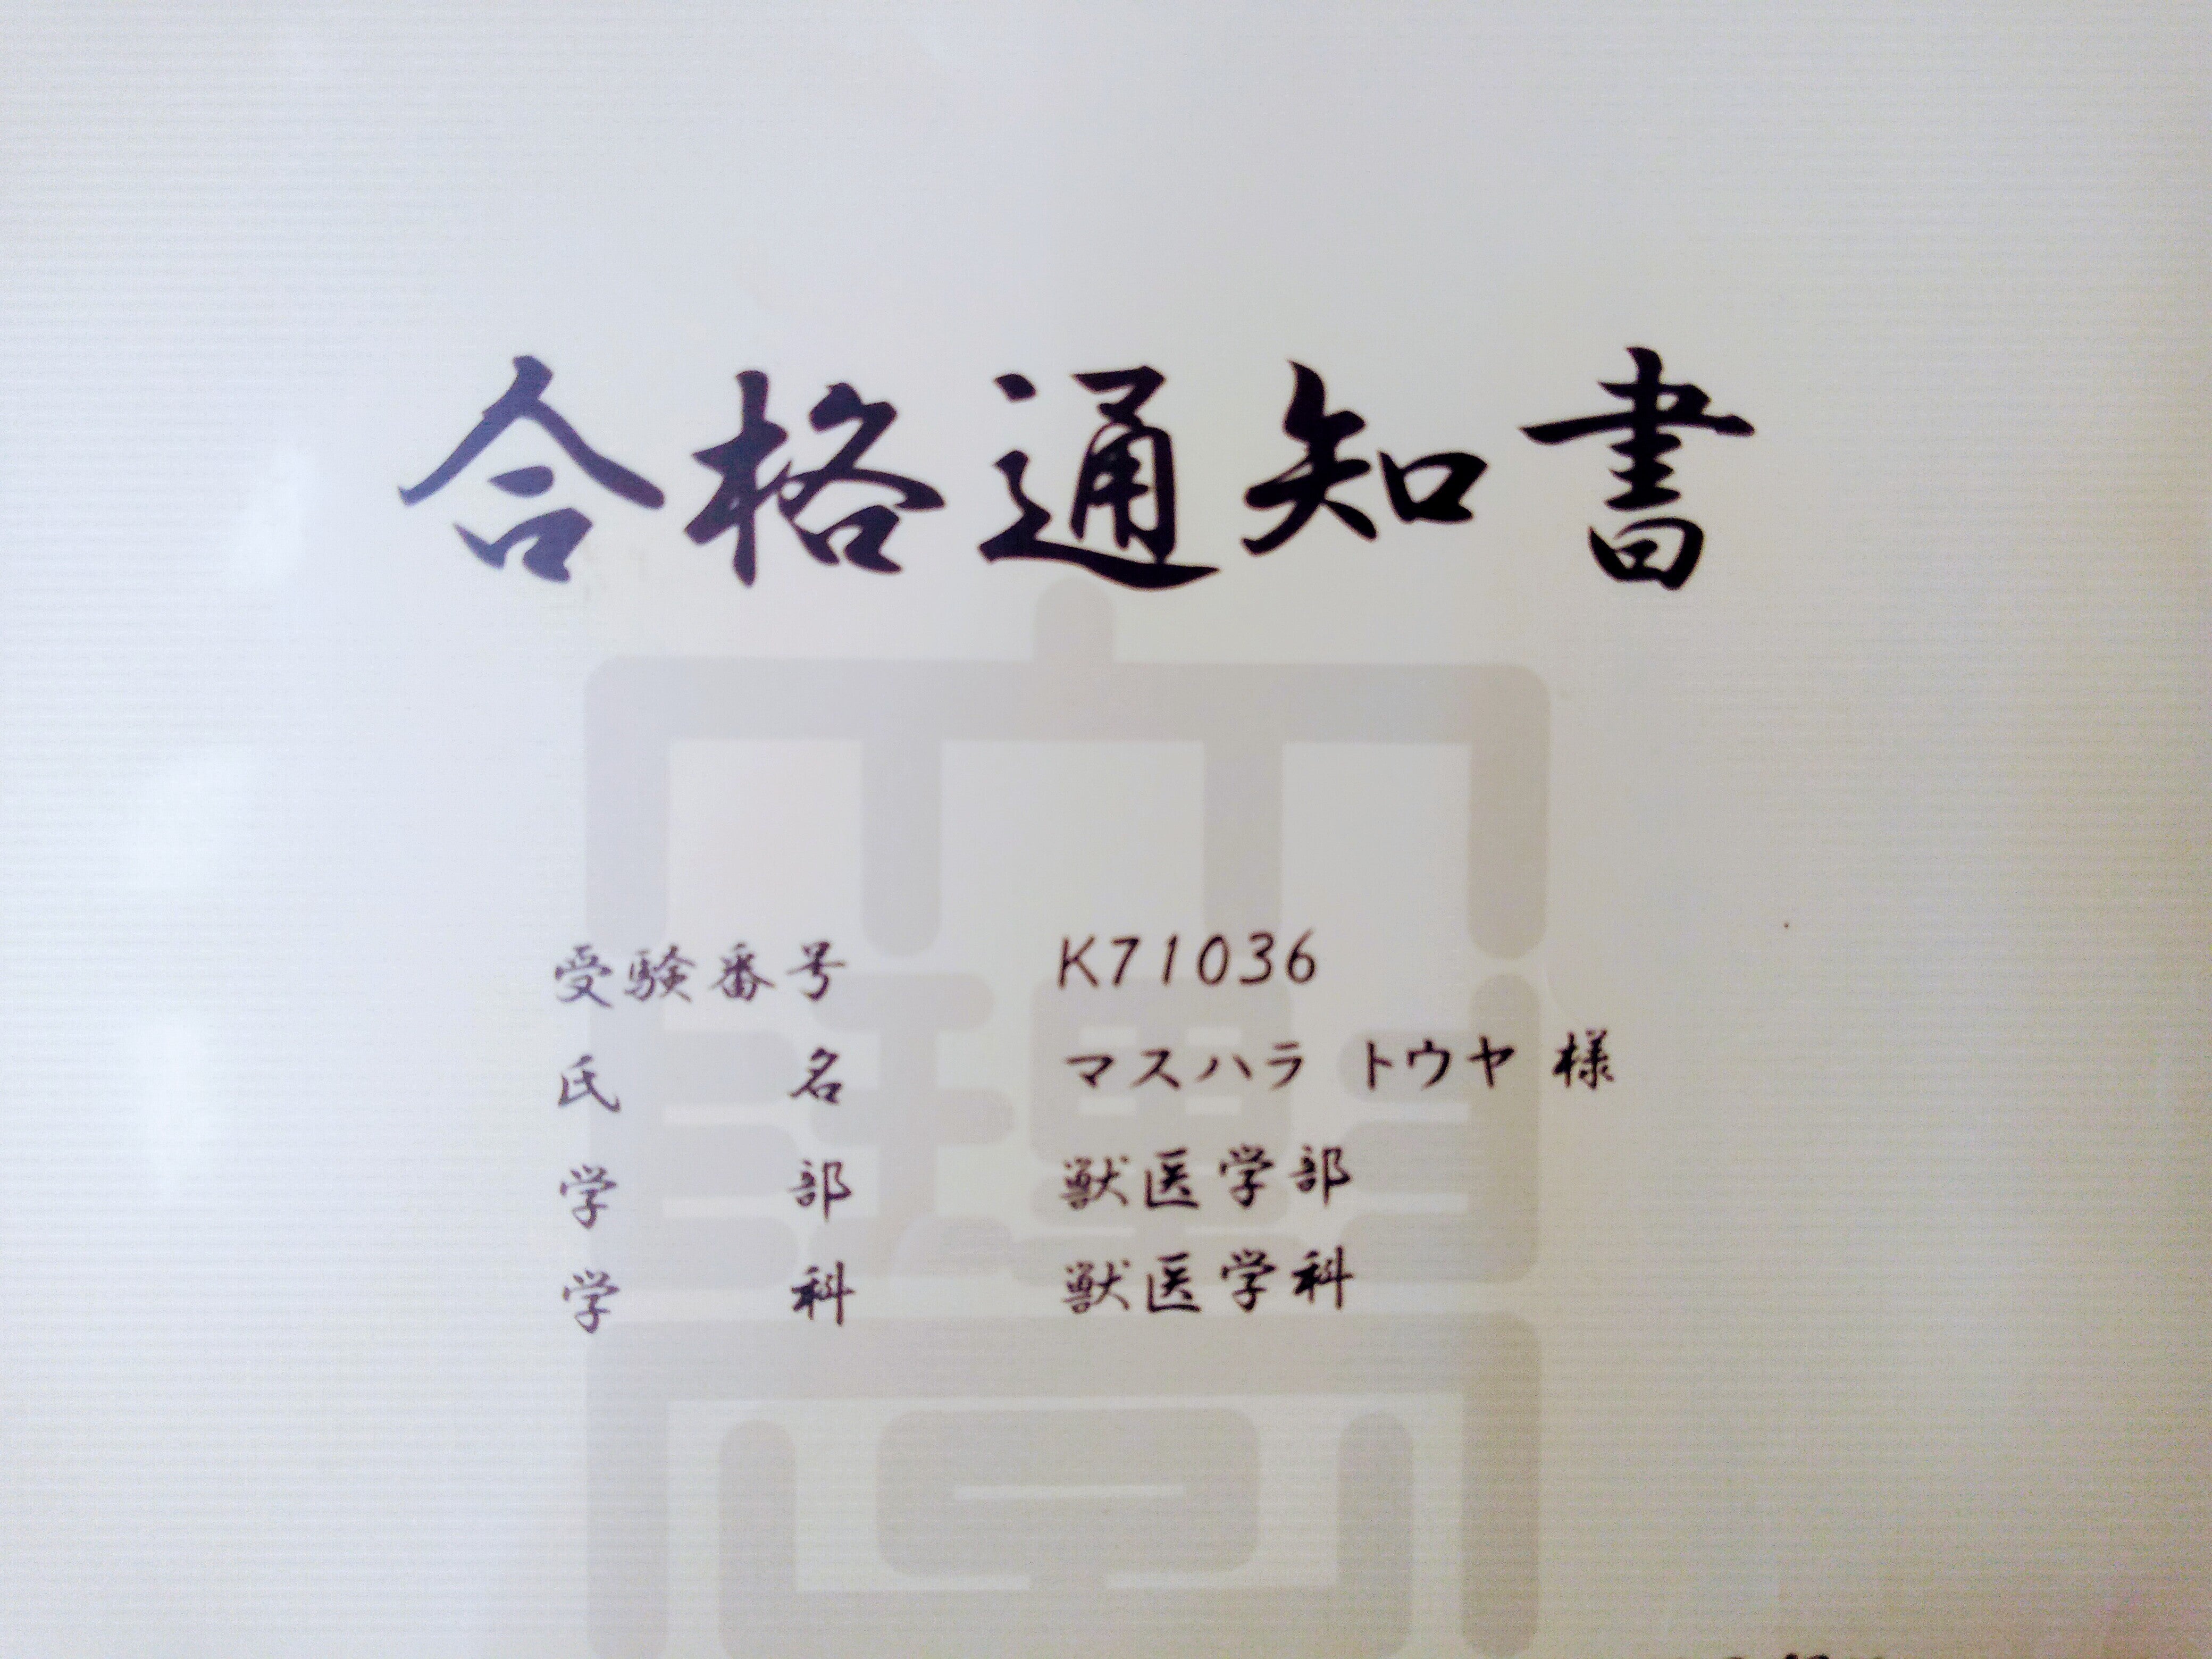 合格通知書
受験番号 K71036
氏名 マスハラ トウヤ 様
学部 獣医学部
学科 獣医学科